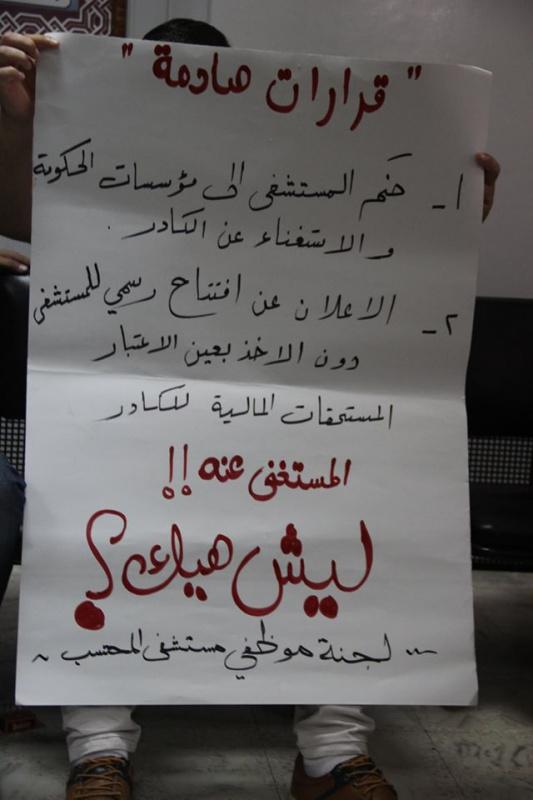 " قرارات صادمة "
١- ضم المستشفى الى مؤسسات الحكومة
والاستغناء عن الكادر.
٢- الاعلان عن افتتاح رسمي للمستشفى
دون الاخذ بعين الاعتبار
المستحقات المالية للكادر
المستغنى عنه !!
ليش هيك ؟
لجنة موظفي مستشفى المحتسب